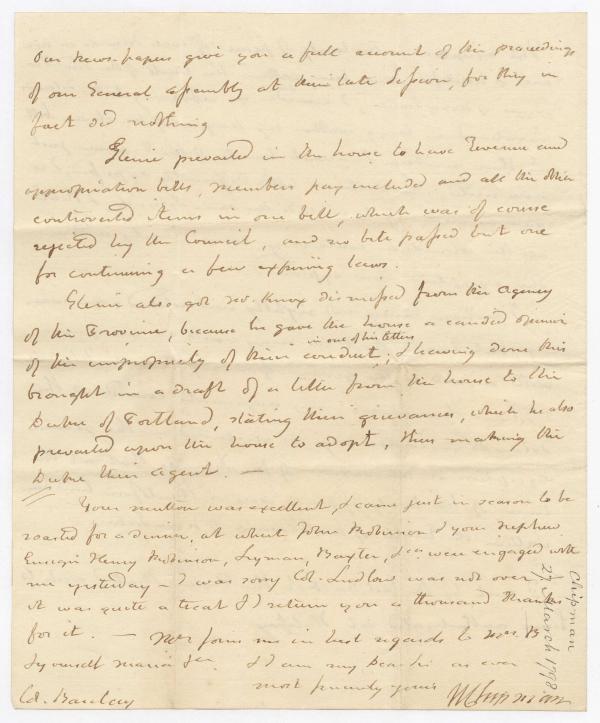 Our News-papers give you a full account of the proceedings
of our General Assembly at their late Session, for they in
fact did nothing
Glenie prevailed in the house to have Revenue and
appropriation bills, members pay included and all the other
controverted items in one bill, which was of course
rejected by the Council, and no bill passed but one
for continuing a few expiring laws.
Glenie also got Mr. Knox dismissed from the Agency
of the Province, because he gave the house a candid opinion
in one of his letters
of the impropriety of their conduct; & having done this
brought in a draft of a letter from the house to the
Duke of Portland, stating their grievances, which he also
prevailed upon the house to adopt, thus making the
Duke their Agent. —
Your mutton was excellent, it came just in season to be
roasted for a dinner, at which John Robinson & your Nephew
Ensign Henry Robinson, Lyman, Baxter, &ca were engaged with
me yesterday — I was sorry Col. Ludlow was not over
it was quite a treat & I return you a thousand thanks
for it. — Mrs. joins me in best regards to Mrs. B
& yourself Maria &ca I am my Dear Sir as ever
most sincerely yours
W Chipman
Col. Barclay
Chipman
27 March 1798